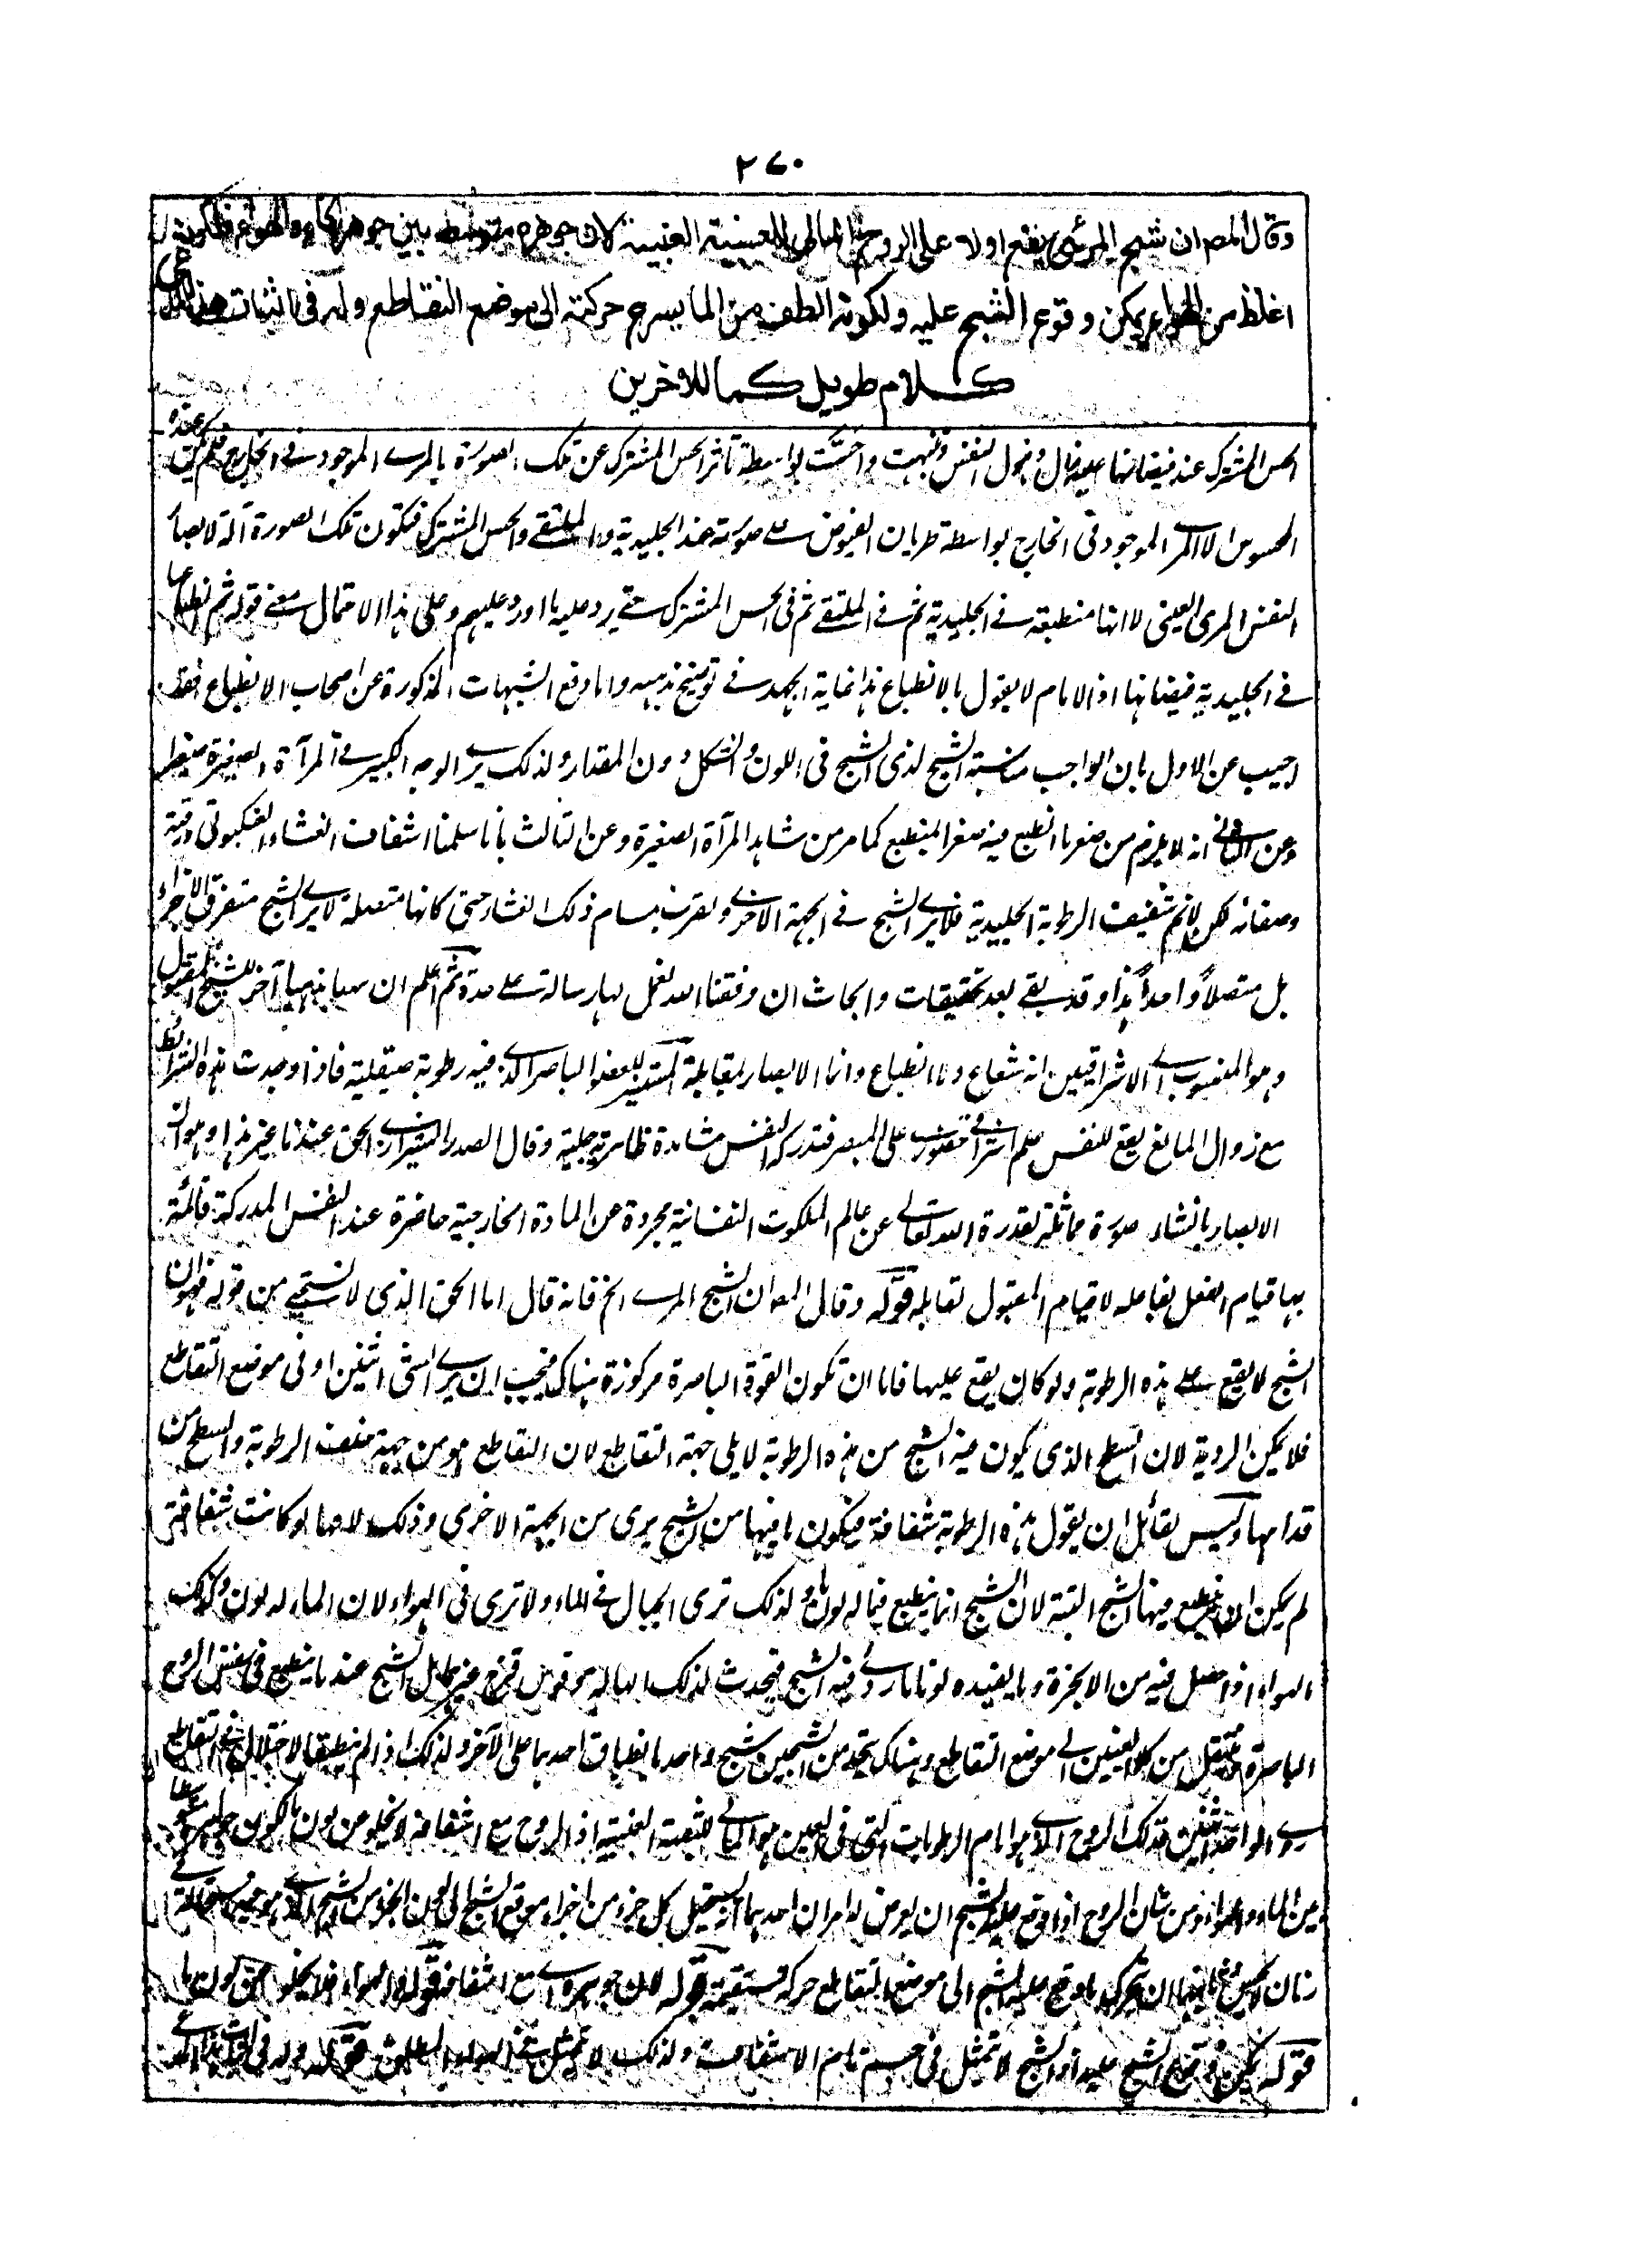 ٢٧٠
وقال المصر ان شبح المرئي يقع اولا على الروح المالى للعينية العنبية لان جوهره متوسط بين جوهر الماء والهواء فلكونه
اغلظ من الهواء يمكن وقوع الشبح عليه ولكونه الطف من الما يسرع حركته الى موضع التقاطع وله فى اثبات هذا
كلام طويل كما للاخرين
الحس المشترك عند فيضانها عليه وتنبهت واحست بواسطة تأثر الحس المشترك عن تلك الصورة بالمرے الموجود فے الخارج فلم يكن
المحسوس الا المرے الموجود فى الخارج بواسطة طريان الفيوض علے صورته عند الجليدية والملتقے والحس المشترك فتكون تلك الصورة آلة لابصار
النفس المرى العينى لا انها منطبعة فے الجليدية ثم فے الملتقے ثم فى الحس المشترك حتے يرد عليه ما اورد عليهم وعلى هذا الاحتمال معنے قوله ثم انطباعها
فے الجليدية فيضانها اذ الامام لا يقول بالانطباع هذا نهاية الجهد فے توضيح مذهبه واما دفع الشبهات المذكورة عن اصحاب الانطباع فقد
اجيب عن الاول بان الواجب مناسبة الشبح لذى الشبح فى اللون والشكل دون المقدار ولذلك يرے الوجه الكبير فے المرآة الصغيرة صغيرا
وعن الثانے انه لا يلزم من صغر ما انطبع فيه صغر المنطبع كما مر من شاهد المرآة الصغيرة وعن الثالث بانا سلمنا اشفاف الغشاء العنكبوتى ورقته
وصفائه لكن لا نم شفيف الرطوبة الجليدية فلا يرے الشبح فے الجهة الاخرے ولقرب مسام ذلك الغشاء حتى كانها متصلة لا يرے الشبح متفرق الاجزاء
بل متصلاً واحداً هذا وقد بقے بعد تحقيقات وابحاث ان وفقنا الله نعمل لها رسالة علے حدة ثم اعلم ان ههنا مذهبا آخر للشيخ المقتول
وهو المنسوب الے الاشراقيين انه شعاع ولا انطباع وانما الابصار بمقابلة المستنير للعضو الباصر الذے فيه رطوبة صيقلية فاذا وجدت هذه الشرائط
مع زوال المانع يقع للنفس علم اشراقے حضورے على المبصر فتدركه النفس مشاهدة ظاهرة جلية وقال الصدر الشيرازے الحق عندنا غير هذا وهو ان
الابصار بانشاء صورة مماثلة بقدرة الله تعالے عن عالم الملكوت النفسانية مجردة عن المادة الخارجية حاضرة عند النفس المدركة قائمة
بها قيام الفعل بفاعله لا قيام المقبول بقابله قوله وقال المصر ان الشبح المرے الخ فانه قال اما الحق الذى لا نستحے من قوله فهو ان
الشبح لا يقع علے هذه الرطوبة ولو كان يقع عليها فاما ان تكون القوة الباصرة مركوزة هناك فيجب ان يرے الشئ اثنين او فى موضع التقاطع
فلا يمكن الروية لان السطح الذى يكون فيه الشبح من هذه الرطوبة لا يلى جهة التقاطع لان التقاطع هو من جهة خلف الرطوبة والسطح من
قدامها وليس لقائل ان يقول هذه الرطوبة شفافة فيكون ما فيها من الشبح يرى من الجهة الاخرى وذلك لانها لو كانت شفافة
لم يكن ان ينطبع فيها الشبح البتة لان الشبح انما ينطبع فيما له لون ما ولذلك ترى الجبال فے الماء ولا ترى فى الهواء لان الماء له لون وكذلك
الهواء اذا حصل فيه من الابخرة وما يفيده لونا ما رؤے فيه الشبح فيحدث لذلك الهالة وقوس قزح فيز بل الشبح عند ما ينطبع فى نفس الروح
الباصرة ينتقل من كلا العينين الے موضع التقاطع وهناك يتحد من الشبحين شبح واحد بانطباق احدهما على الآخر ولذلك اذا لم ينطبقا لاختلال فے التقاطع
رؤے الواحد اثنين فذلك الروح الذے هو امام الرطوبات التى فى العين هو المالے للثقبة العنبية اذ الروح مع اشفافه لا يخلو عن لون ما لكون جوهره
من الماء والهواء ومن شان الروح اذا وقع عليه الشبح ان يعرض له امران احدهما انه يستقبل كل جزء من اجزاء موقع الشبح الى الجزء من الشبح الذے هو فيه
وثانيهما ان يتحرك ما وقع عليه الشبح الى موضع التقاطع حركة مستقيمة قوله لان جوهره اے مع اشفافه قوله والهواء فلا يخلو عن لون ما
قوله يمكن وقوع الشبح عليه اذ الشبح لا يتمثل فى جسم تام الاشفاف ولذلك لا يتمثل فے الهواء قوله وله فى اثبات هذا